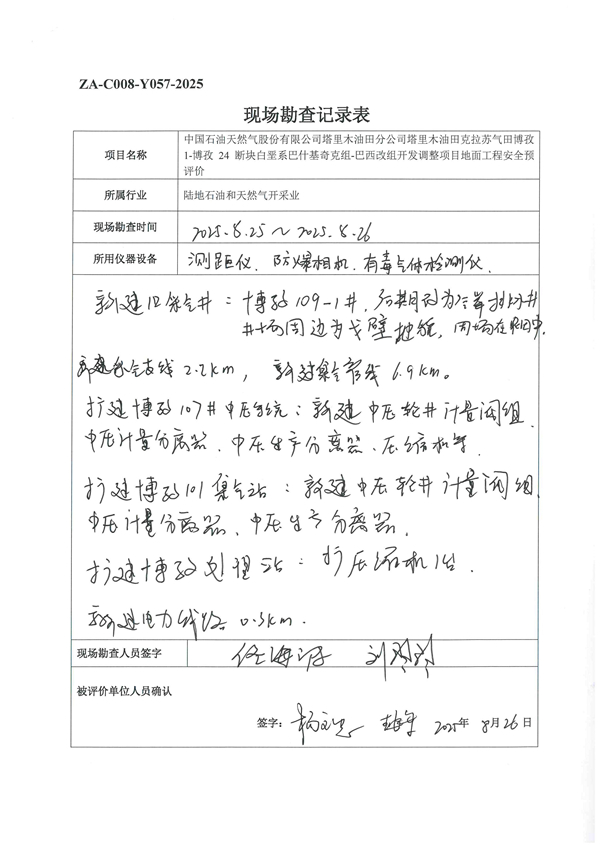 ZA-C008-Y057-2025
现场勘查记录表
项目名称
中国石油天然气股份有限公司塔里木油田分公司塔里木油田克拉苏气田博孜
1-博孜 24 断块白垩系巴什基奇克组-巴西改组开发调整项目地面工程安全预
评价
所属行业
陆地石油和天然气开采业
现场勘查时间
2025.8.25～2025.8.26
所用仪器设备
测距仪、防爆相机、有毒气体检测仪.
新建 采气井：博孜109-1井,
井场周边为戈壁地貌,
新建采气支线2.2km, 新建集气管线6.9km。
扩建博孜107井中压系统：新建中压轮井计量阀组、
中压计量分离器、中压生产分离器、压缩机等
扩建博孜101集气站：新建中压轮井计量阀组、
中压计量分离器、中压生产分离器.
扩建博孜处理站：扩压缩机1台.
新建电力线路0.3km.
现场勘查人员签字
被评价单位人员确认
签字：
2025年 8月26日